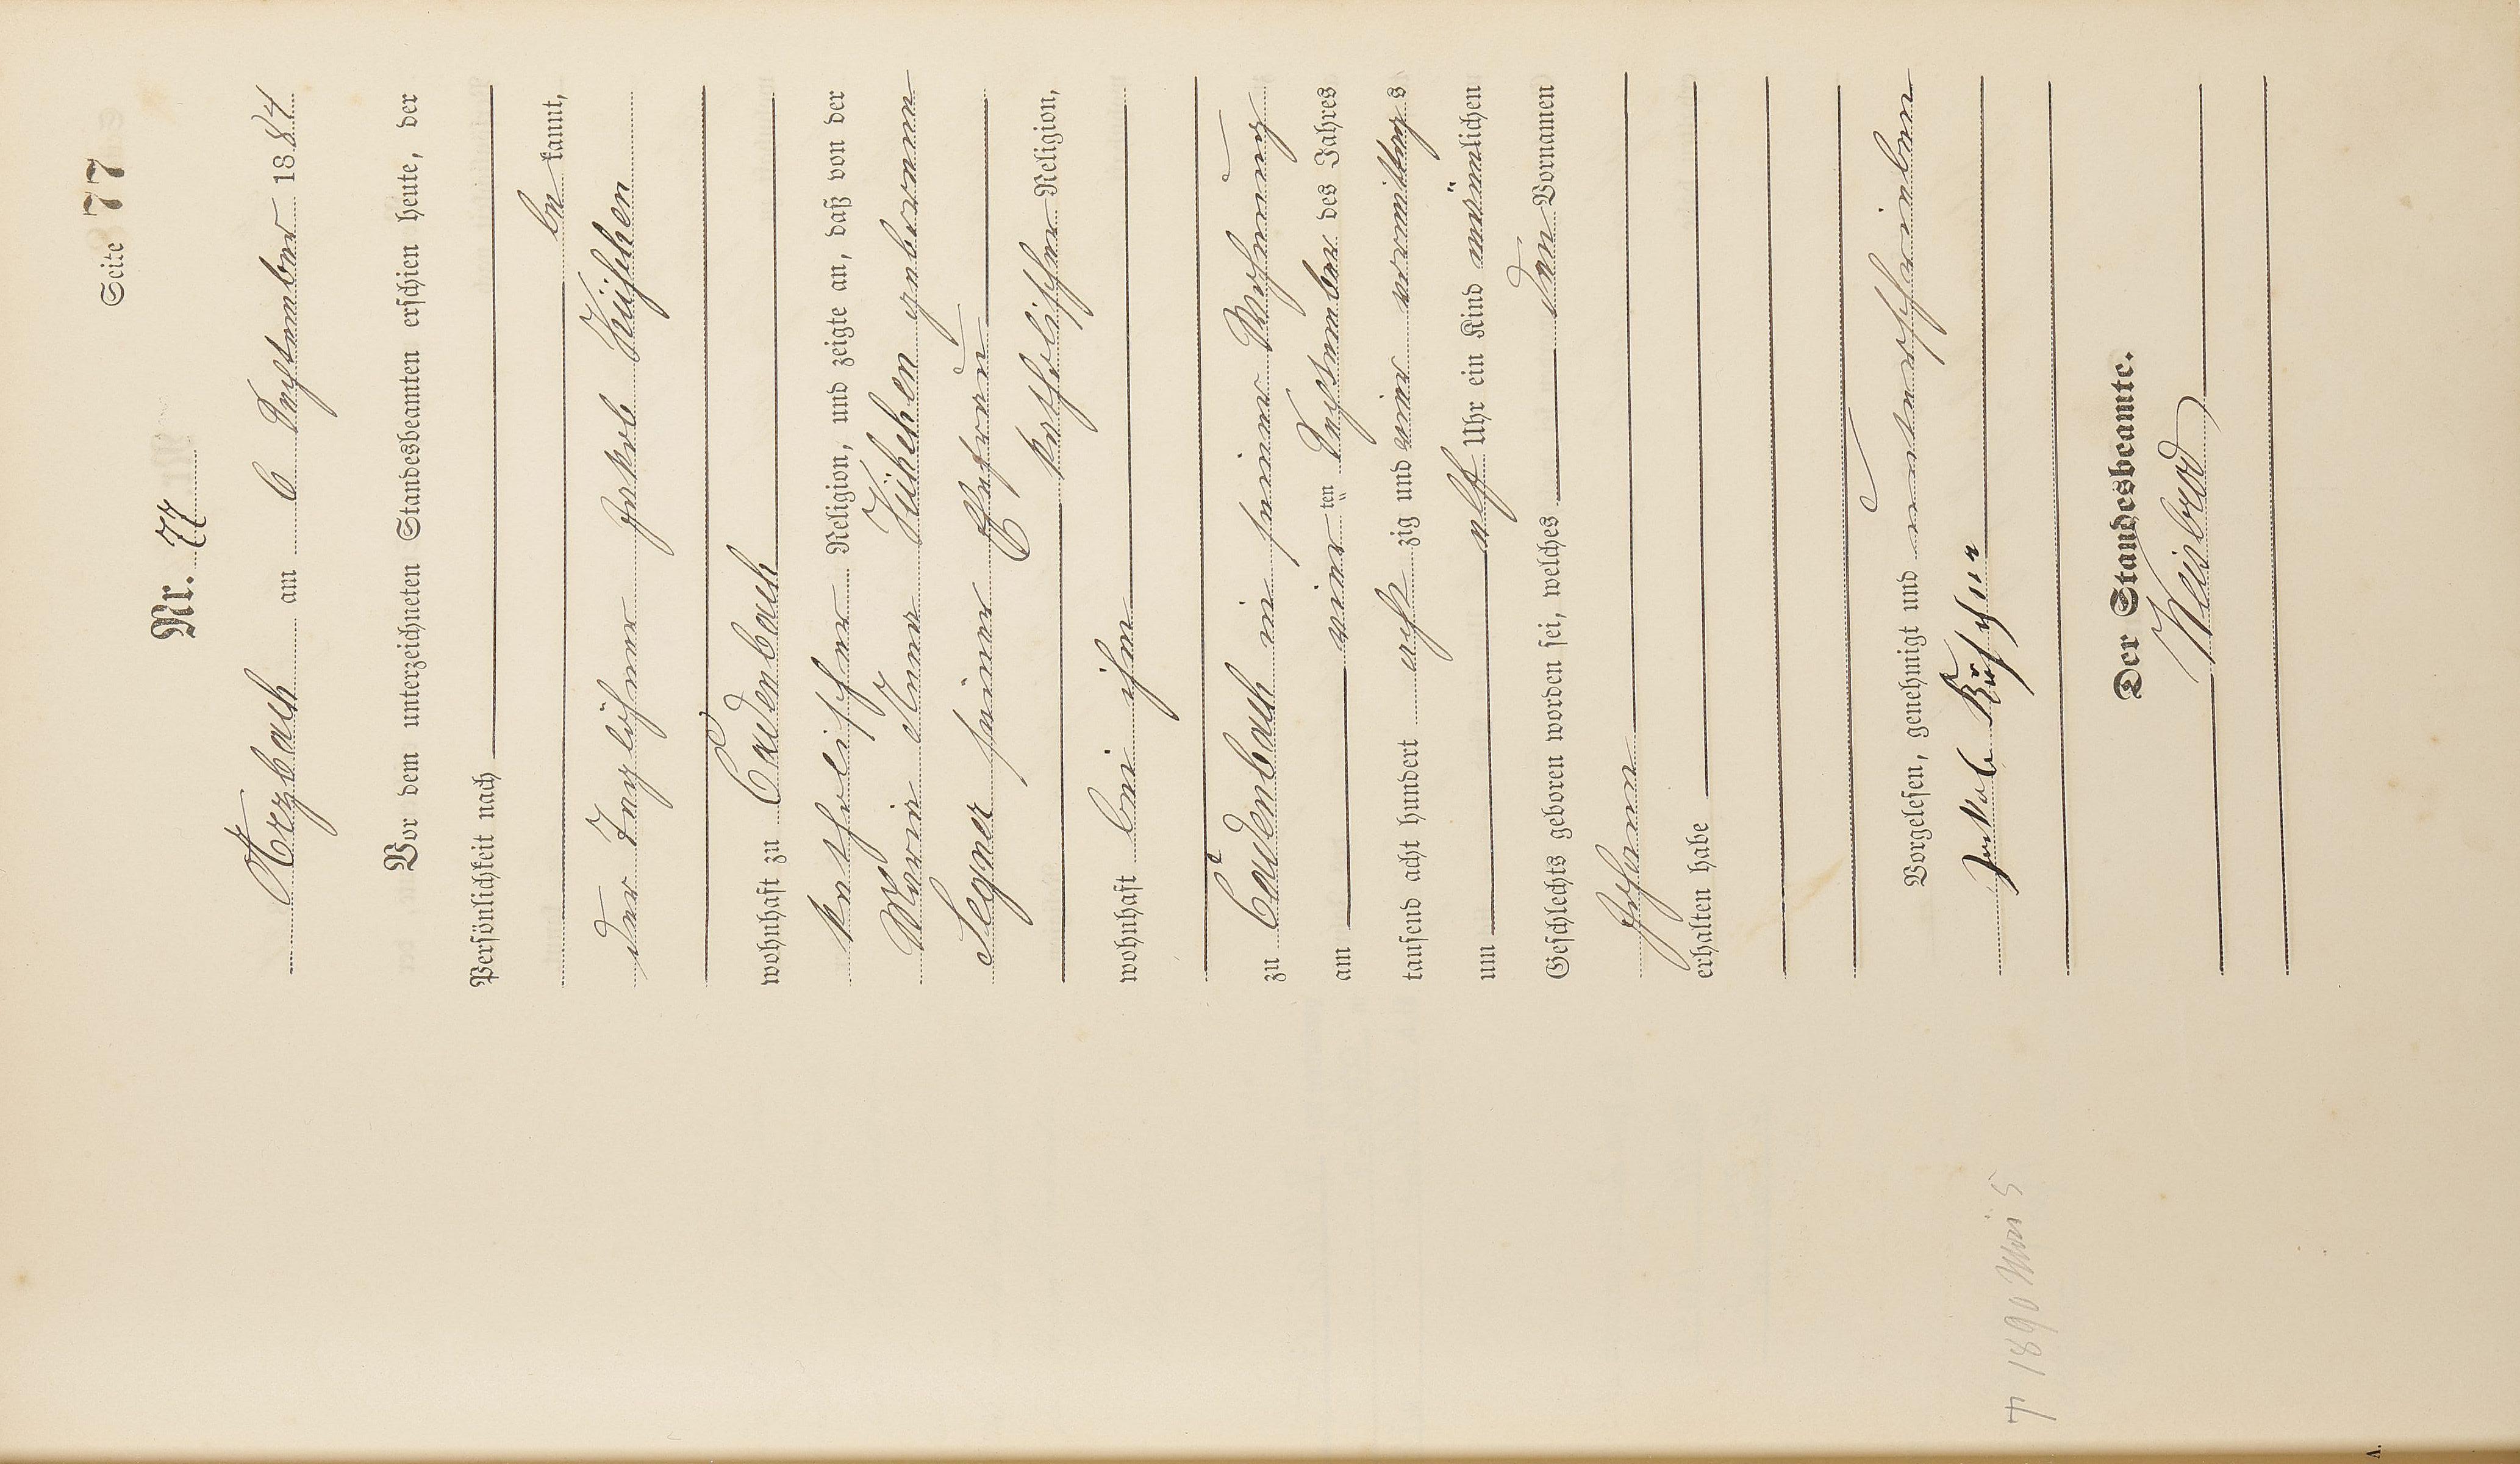 Seite 77
Nr. 77
Arzbach am 6 September 1884
Vor dem unterzeichneten Standesbeamten erschien heute, der
Persönlichkeit nach
be kannt,
der Taglöhner Jakob Küchchen
wohnhaft zu Cadenbach
katholischer Religion, und zeigte an, daß von der
Maria Anna Küchchen geborenen
Legner seiner Ehefrau
katholischer Religion,
wohnhaft bei ihm
zu Cadenbach in seiner Wohnung
am vier ten September des Jahres
tausend acht hundert acht zig und vier vormittags
um elf Uhr ein Kind männlichen
Geschlechts geboren worden sei, welches den Vornamen
Johann
erhalten habe
Vorgelesen, genehmigt und unterschrieben
Jakob
Der Standesbeamte.
† 1890 Mai 5
A.